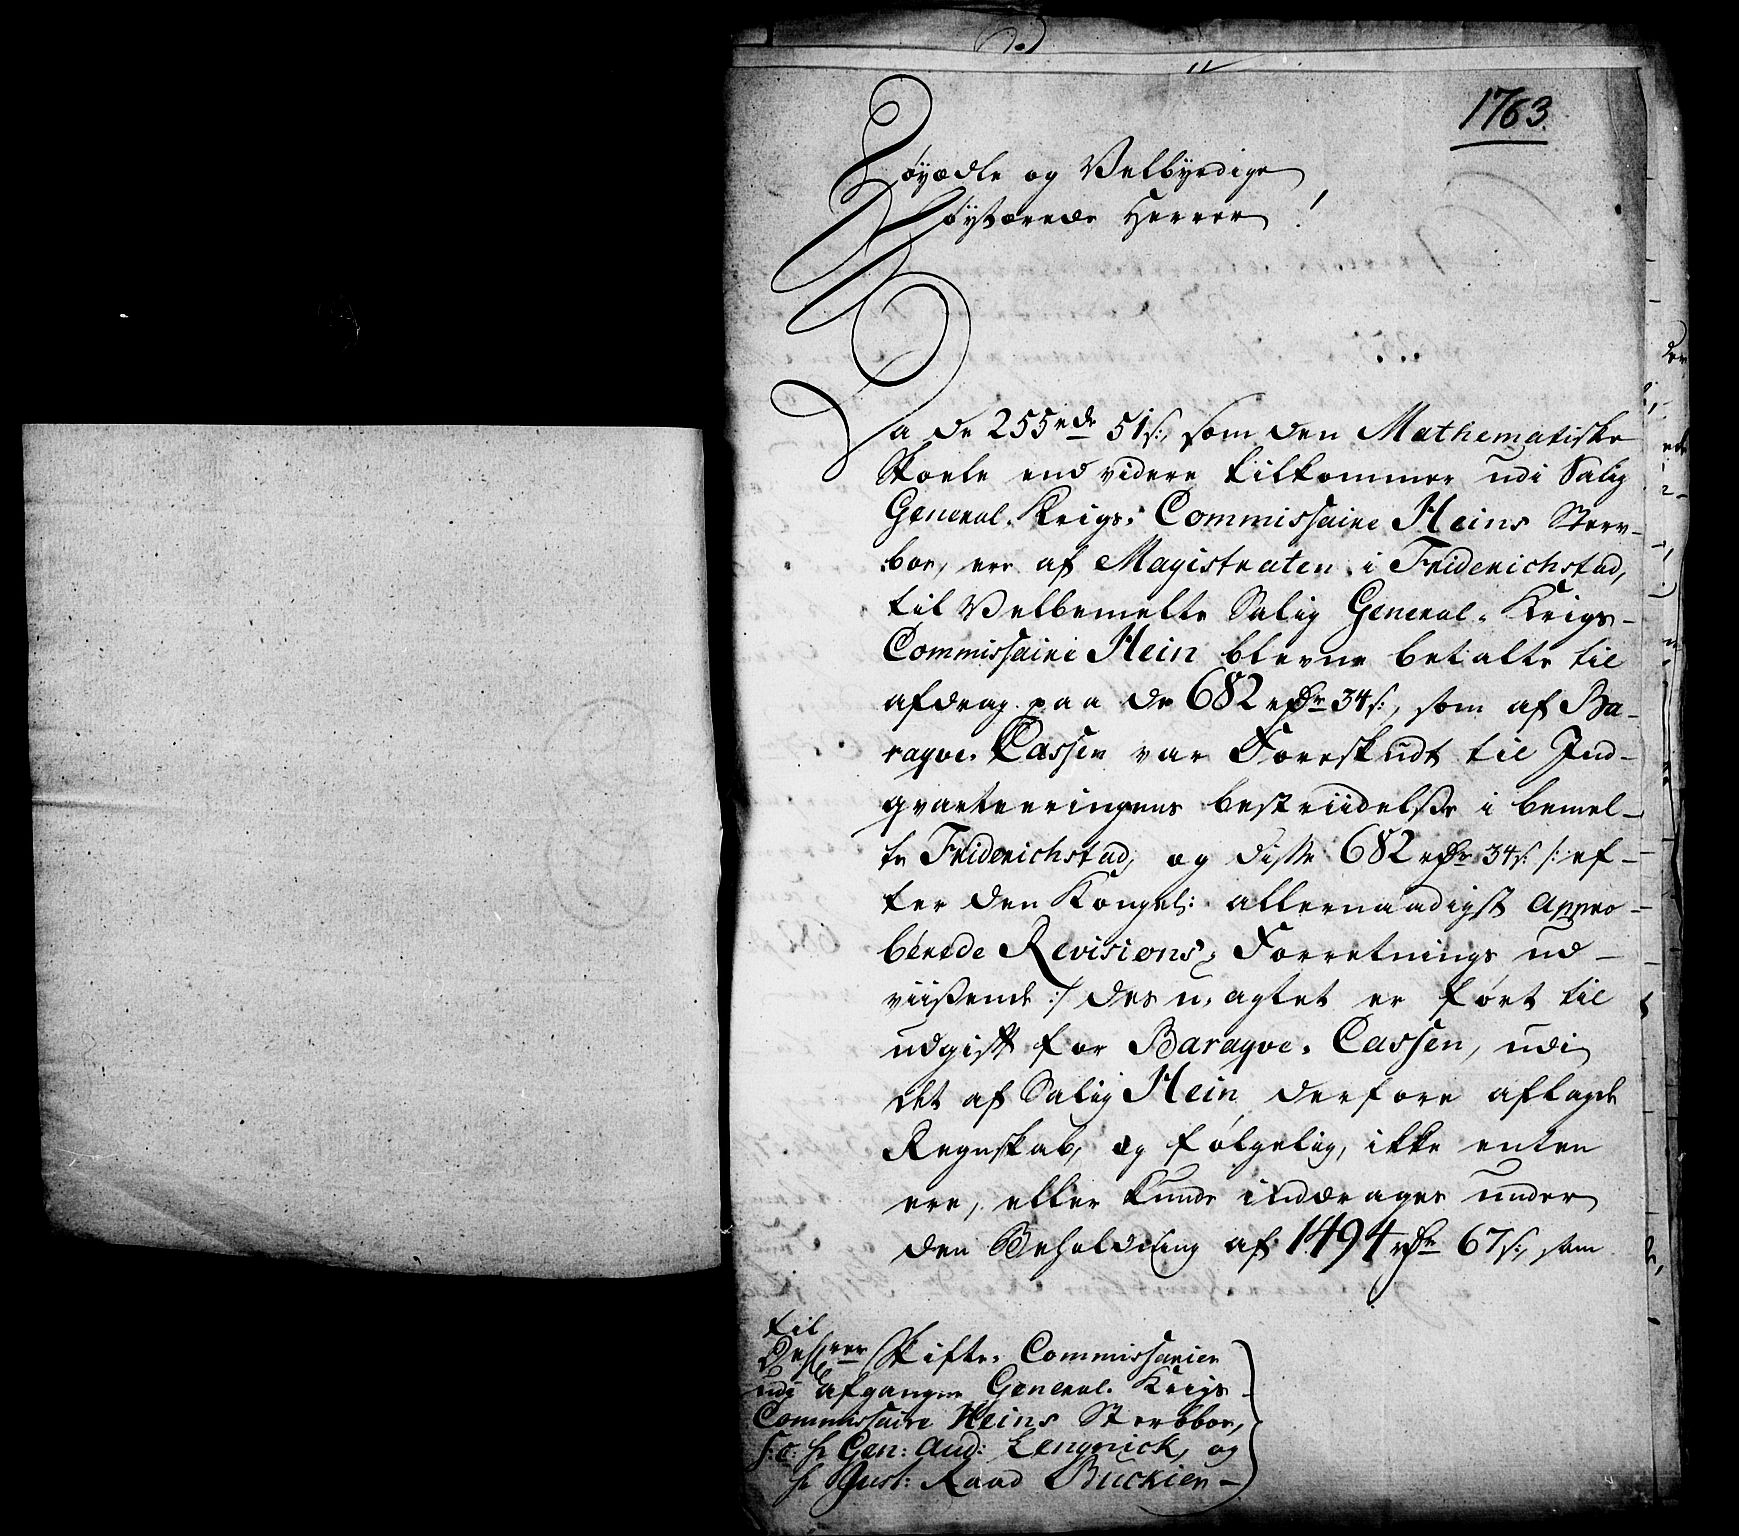 1763.
Höyædle og Velbyrdige
Höystærede Herrer!
Da de 255 rdr 51 s:, som den Mathematiske
Skoele end videre tilkommer udi Salig
General-Krigs-Commissaire Heins Sterv-
boe, ere af Magistraten i Friderichstad,
til Velbemelte Salig General-Krigs-
Commissaire Hein blevne betalte til
afdrag paa de 682 rdr 34 s:, som af Ba-
raqve-Cassen var Forreskudt til Ind-
qvarteeringens bestriidelsse i bemel-
te Friderichstad, og disse 682 rdr 34 s: /: ef-
ter den Kongel: allernaadigst appro-
berede Revisions-Forretnings ud-
viißende :/ des u-agtet er fört til
udgift for Baraqve-Cassen, udi
det af Salig Hein derfore aflagde
Regnskab, og fölgelig, ikke enten
ere, eller kunde inddrages under
den Beholdning af 1494 rdr 67 s:, som
til
De Hrrer Skifte-Commissarier
udi afgangne General-Krigs-
Commissaire Heins Sterbboe,
S: T: Hr Gen: Aud: Lengnick, og
Hr Just: Raad Buckier